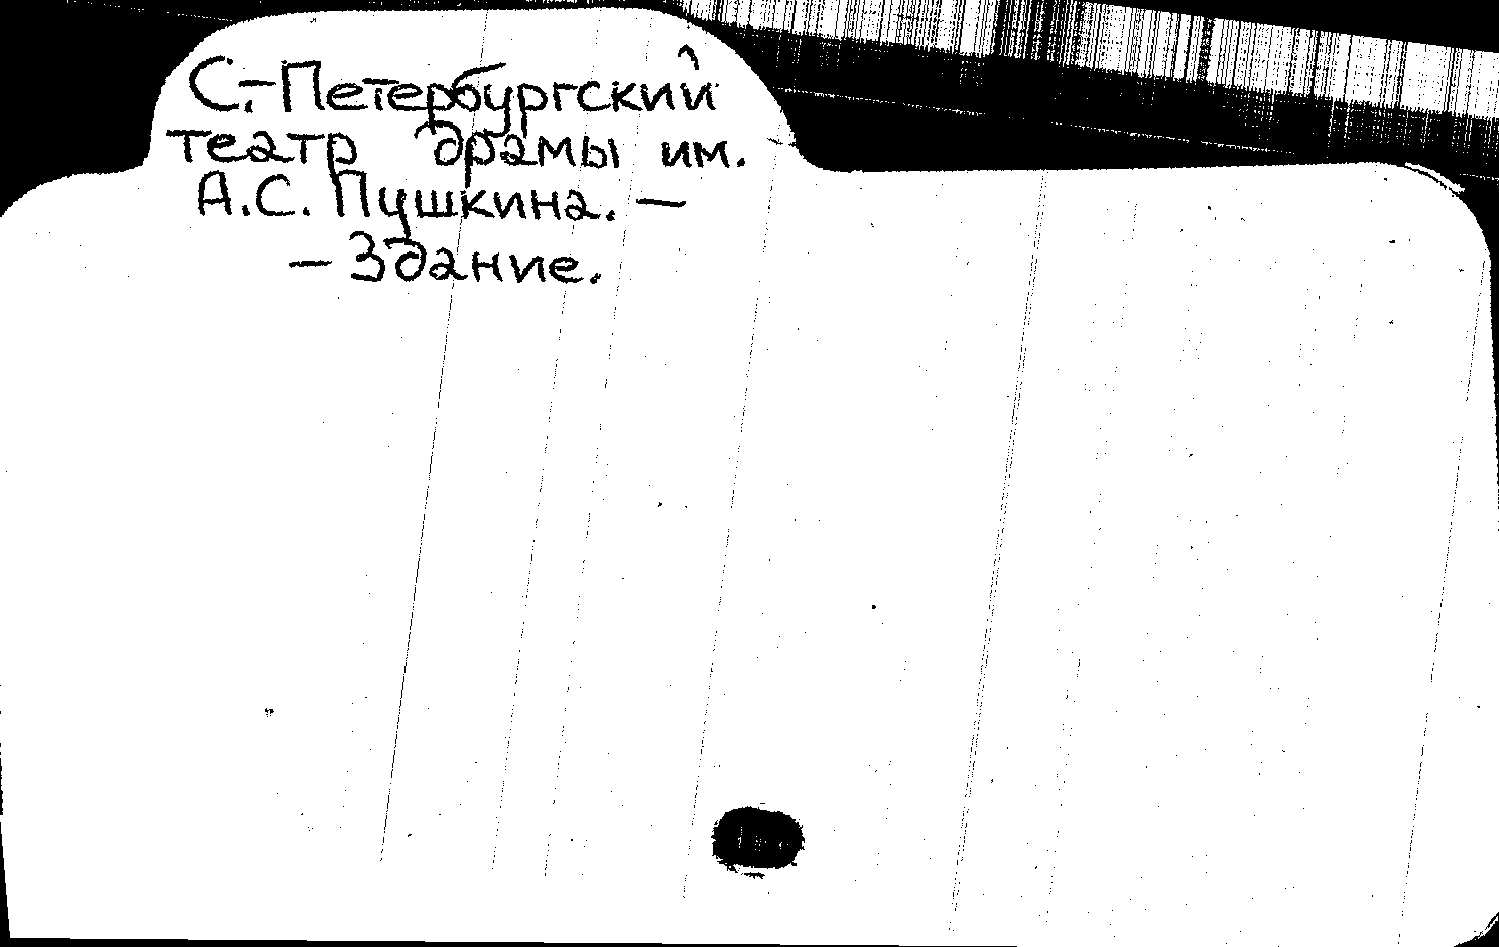 С.-Петербургский
театр драмы им.
А.С. Пушкина. —
— Здание.